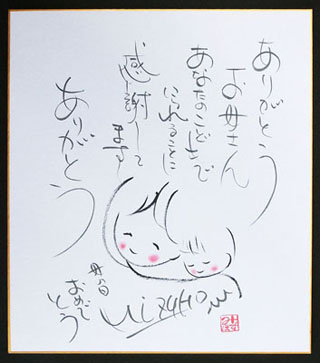 ありがとう
お母さん
あなたのこどもで
いられることに
感謝して
ます
ありがとう
母の日
おめで
とう
MIZUHO